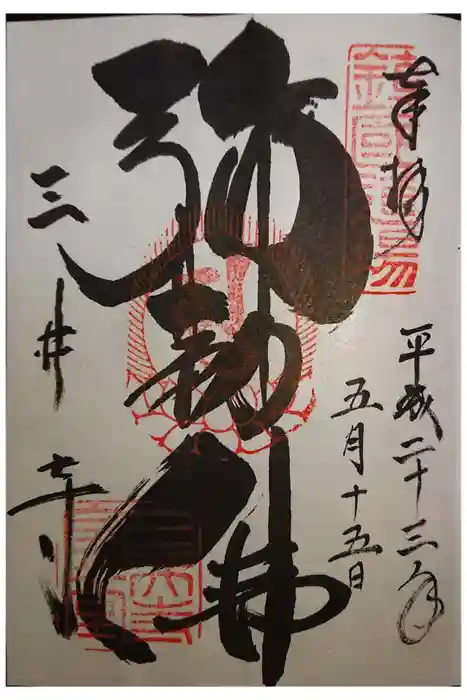 奉拝
平成二十三年
五月十五日
弥勒佛
三井寺